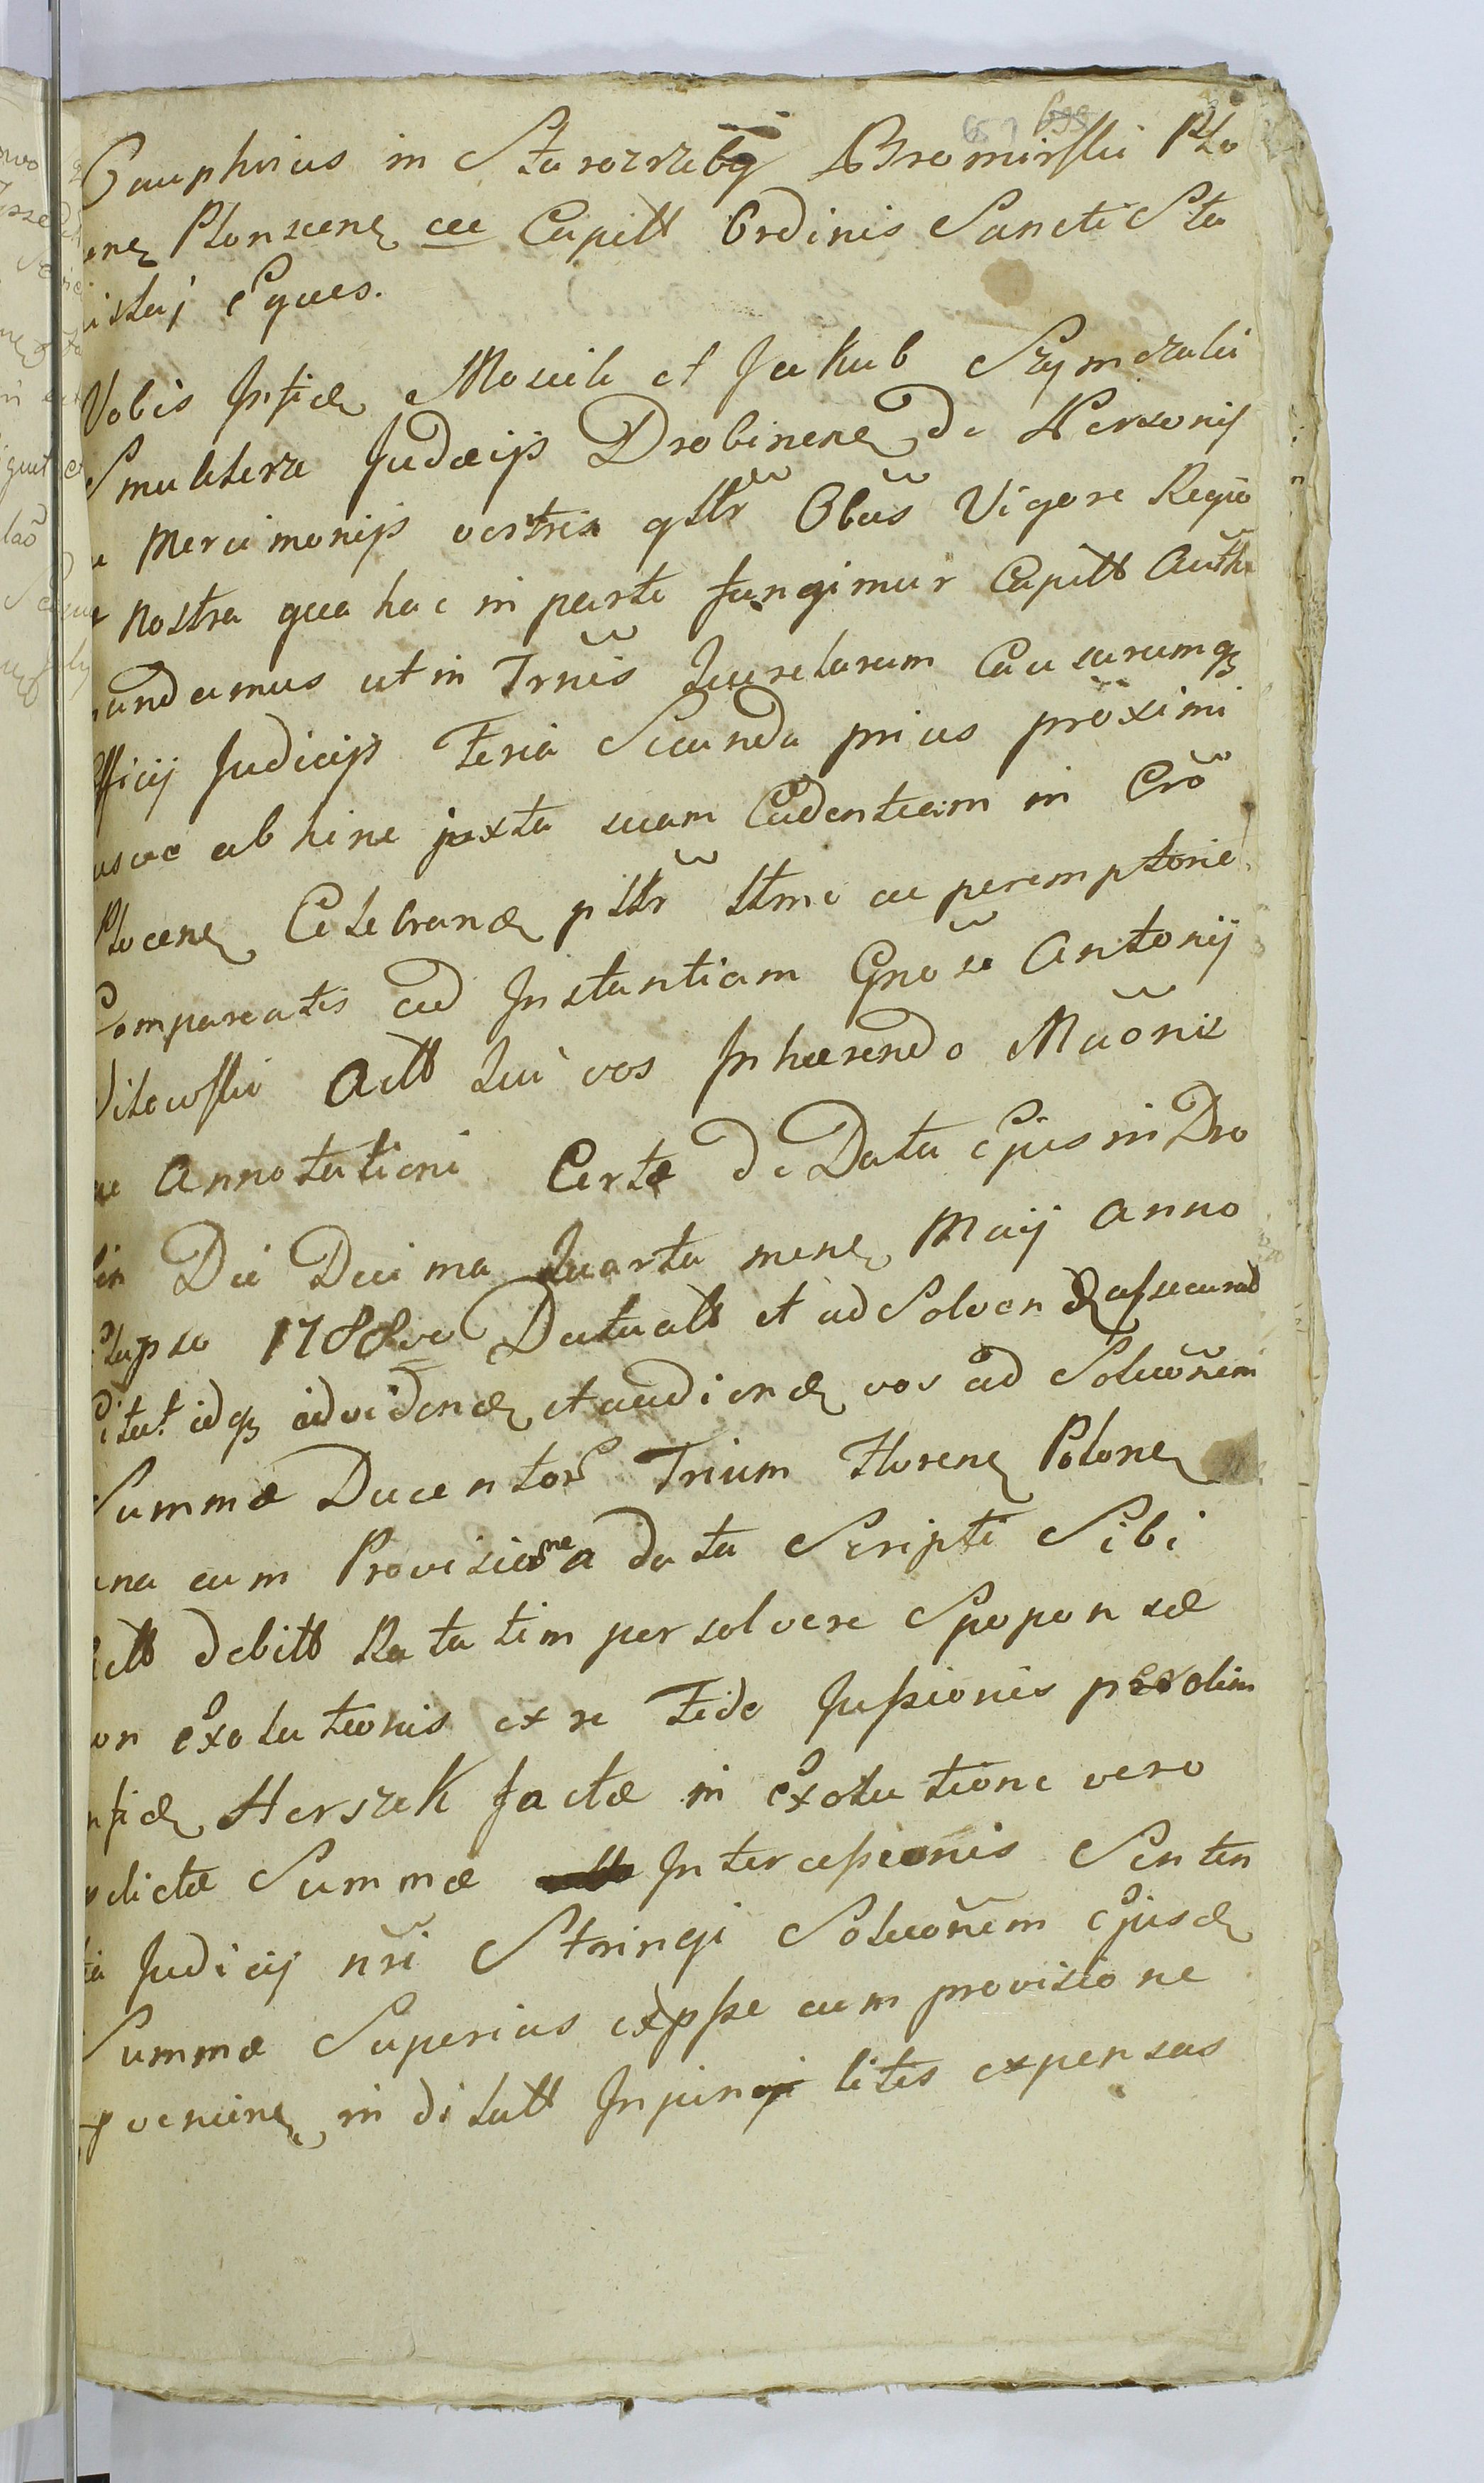 Onuphrius in Starozrzeby Bromirski Plo
enẽ Plonscenẽ ac Capitt Ordinis Sancti Sta
islai Eques.
Vobis Infid. Moscik et Jakub Szymczaki
Smuklerze Judæis Drobinenẽ de Personis
ac Mercimonijs vestris qttr Obus Vigore Regia
et nostra qua hac in parte fungimur Capitt Auth
mandamus ut in Trnis Querelarum Causarumq
Officij Judicijs Feria Secunda prius proximi
usve abhinc juxta suam Cadentiam in Cro
Plocenẽ Celebrand pttr ttme ac peremptorie
Compareatis ad Instantiam Gnosi Antonij
Witowski Actt Qui vos Inhærendo
ac Annotationi Certæ de Data Ejus in Dro
bin Die Decima Quarta mensẽ Maij Anno
elapso 1788vo Datuatt et ad Solvend assecurat
Citat. idq ad videnđ et audienđ vos ad Soluõnem
Summæ Ducentor Trium Florenẽ Polonẽ
una cum Provisione a data Scripti Sibi
Actt debitt Ratatim persolvere Sponponsæ
non exolutionis ex re Fide Jussionis per olim
Infid Herszek factæ in exolutione vero
prdictæ Summæ Intercessionis Senten
tia Judicij nri Stringi Soluõnem Ejusd
Summæ Superius exppsse cum provisione
provenienẽ, in ditatt Inpingi litis expensas